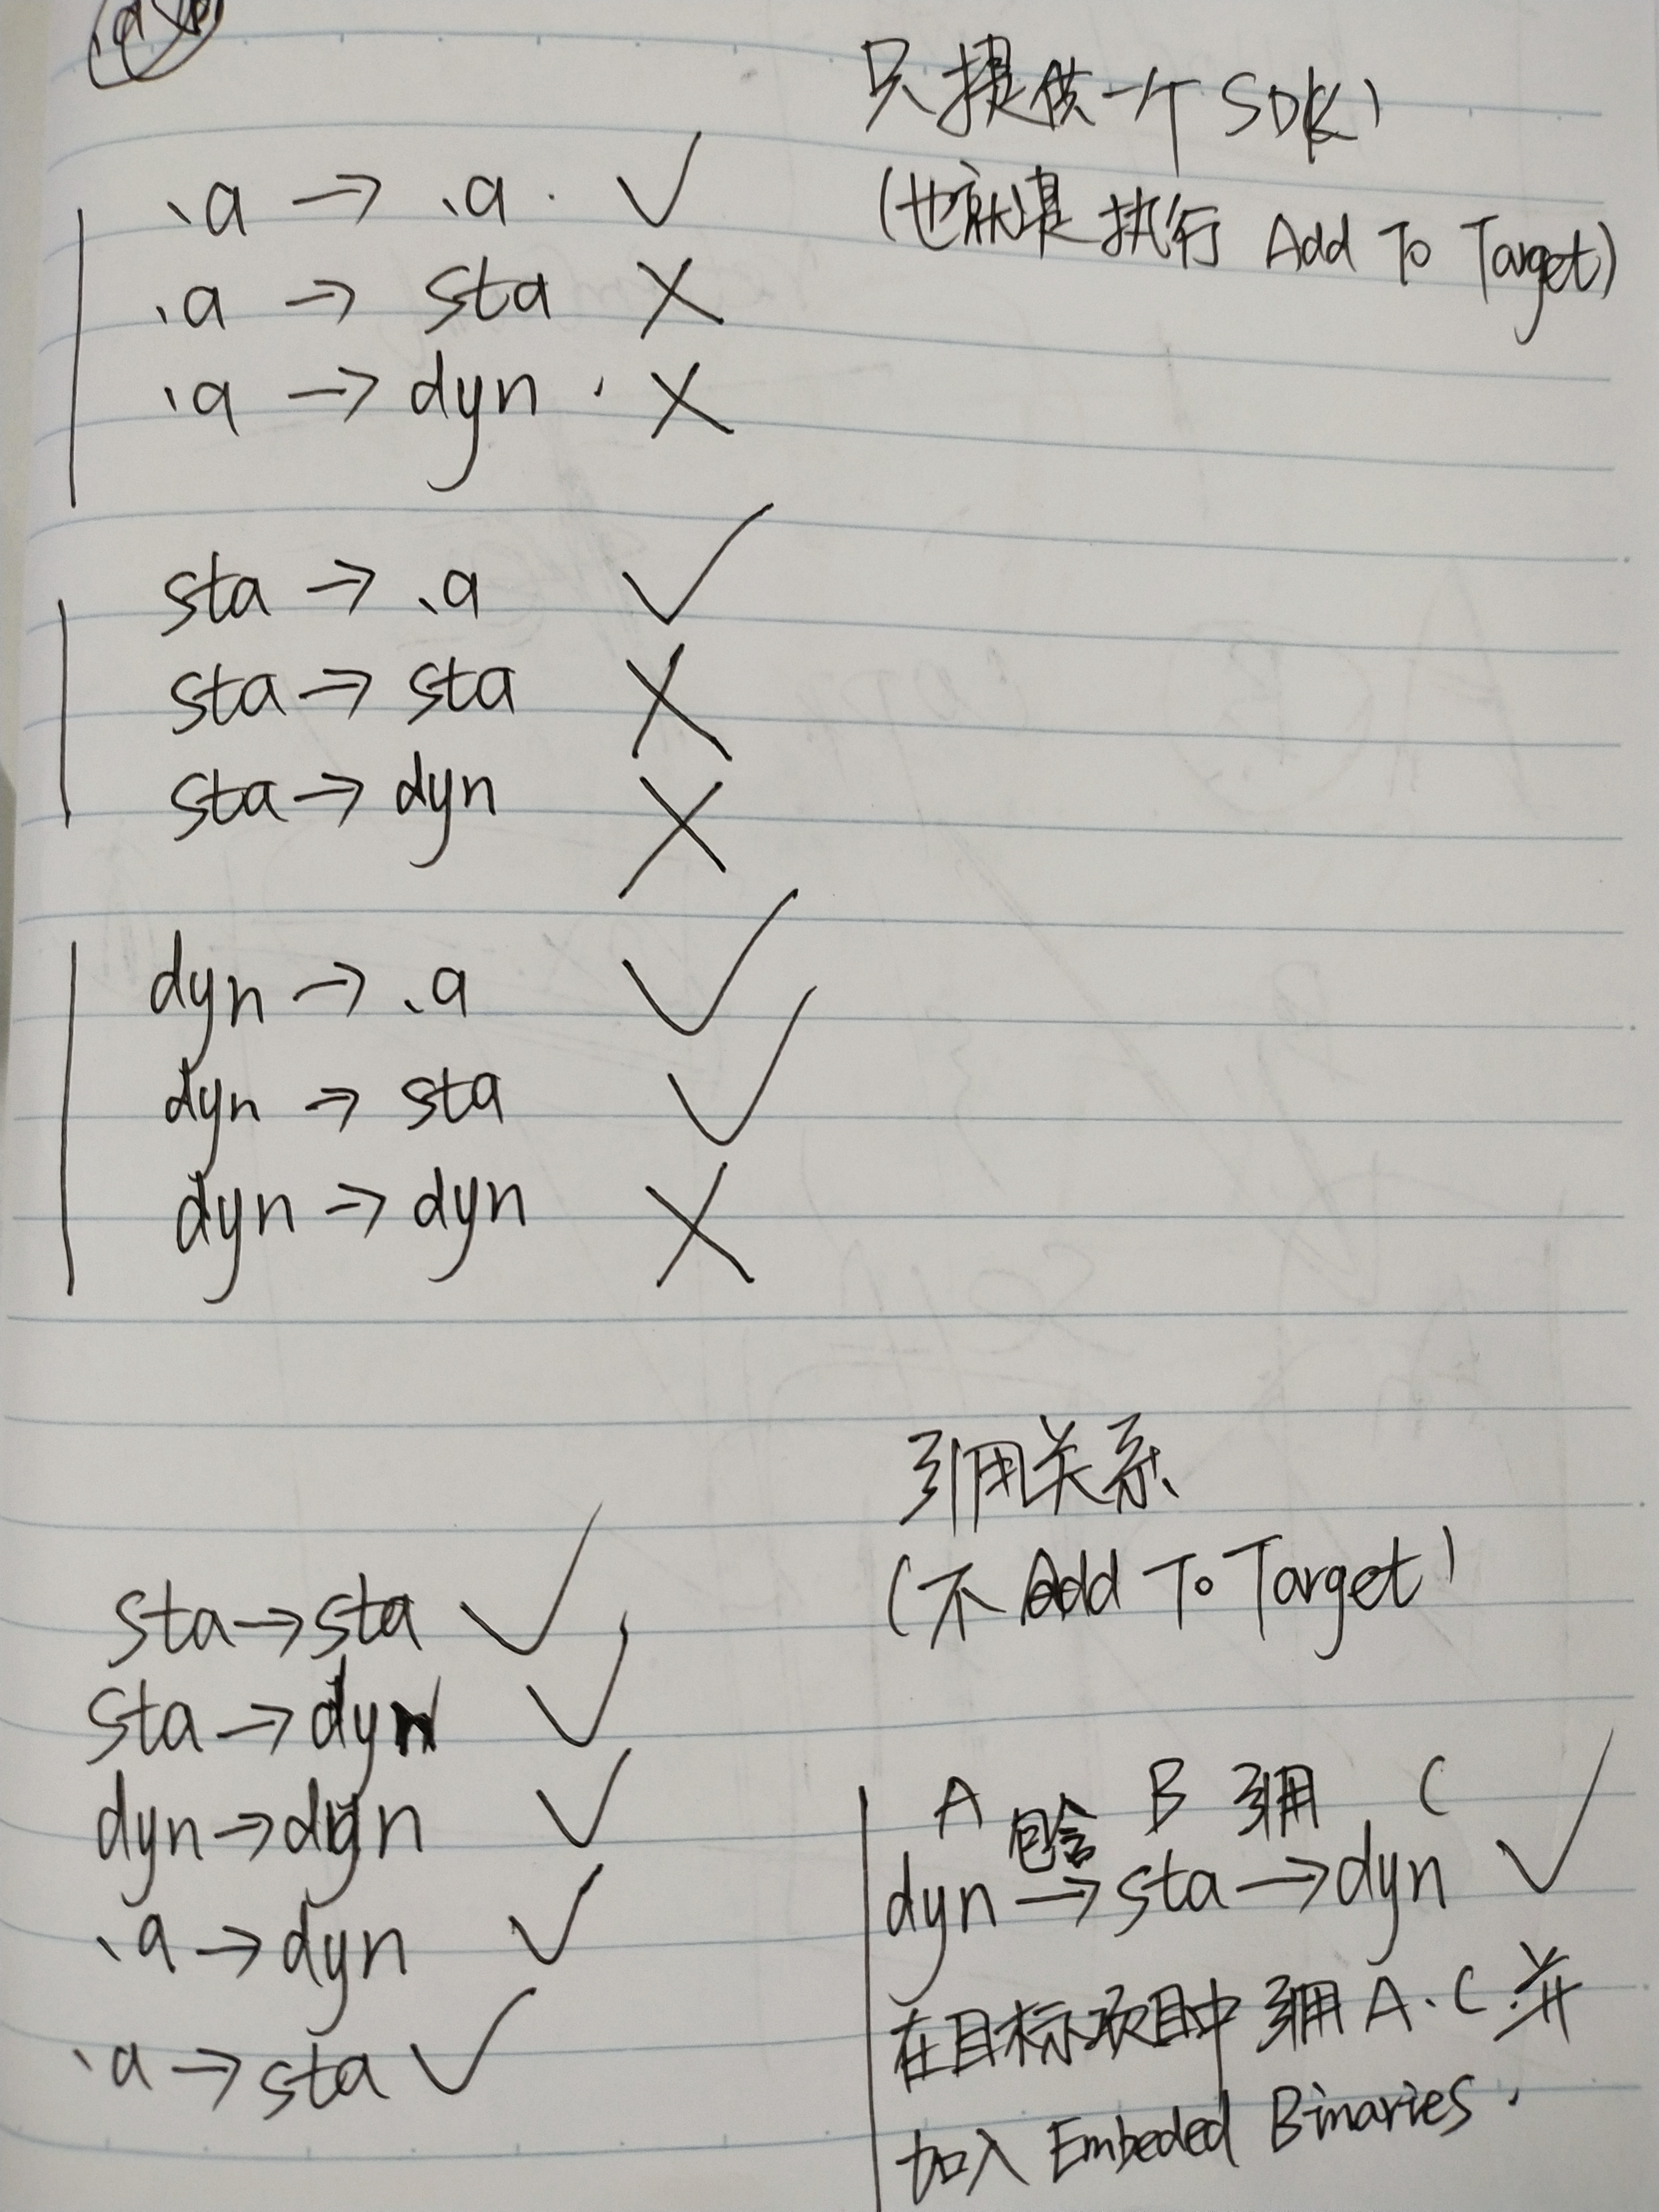 只提供一个SDK)
(也就是执行 Add To Target)
.a → .a. ✓
.a → sta ✗
.a → dyn. ✗
sta → .a ✓
sta → sta ✗
sta → dyn ✗
dyn → .a ✓
dyn → sta ✓
dyn → dyn ✗
引用关系
(不 Add To Target)
sta → sta ✓
sta → dyn ✓
dyn → dyn ✓
.a → dyn ✓
.a → sta ✓
A 包含 B 引用 C
dyn → sta → dyn ✓
在目标项目中引用A.C.并
加入 Embeded Binaries.